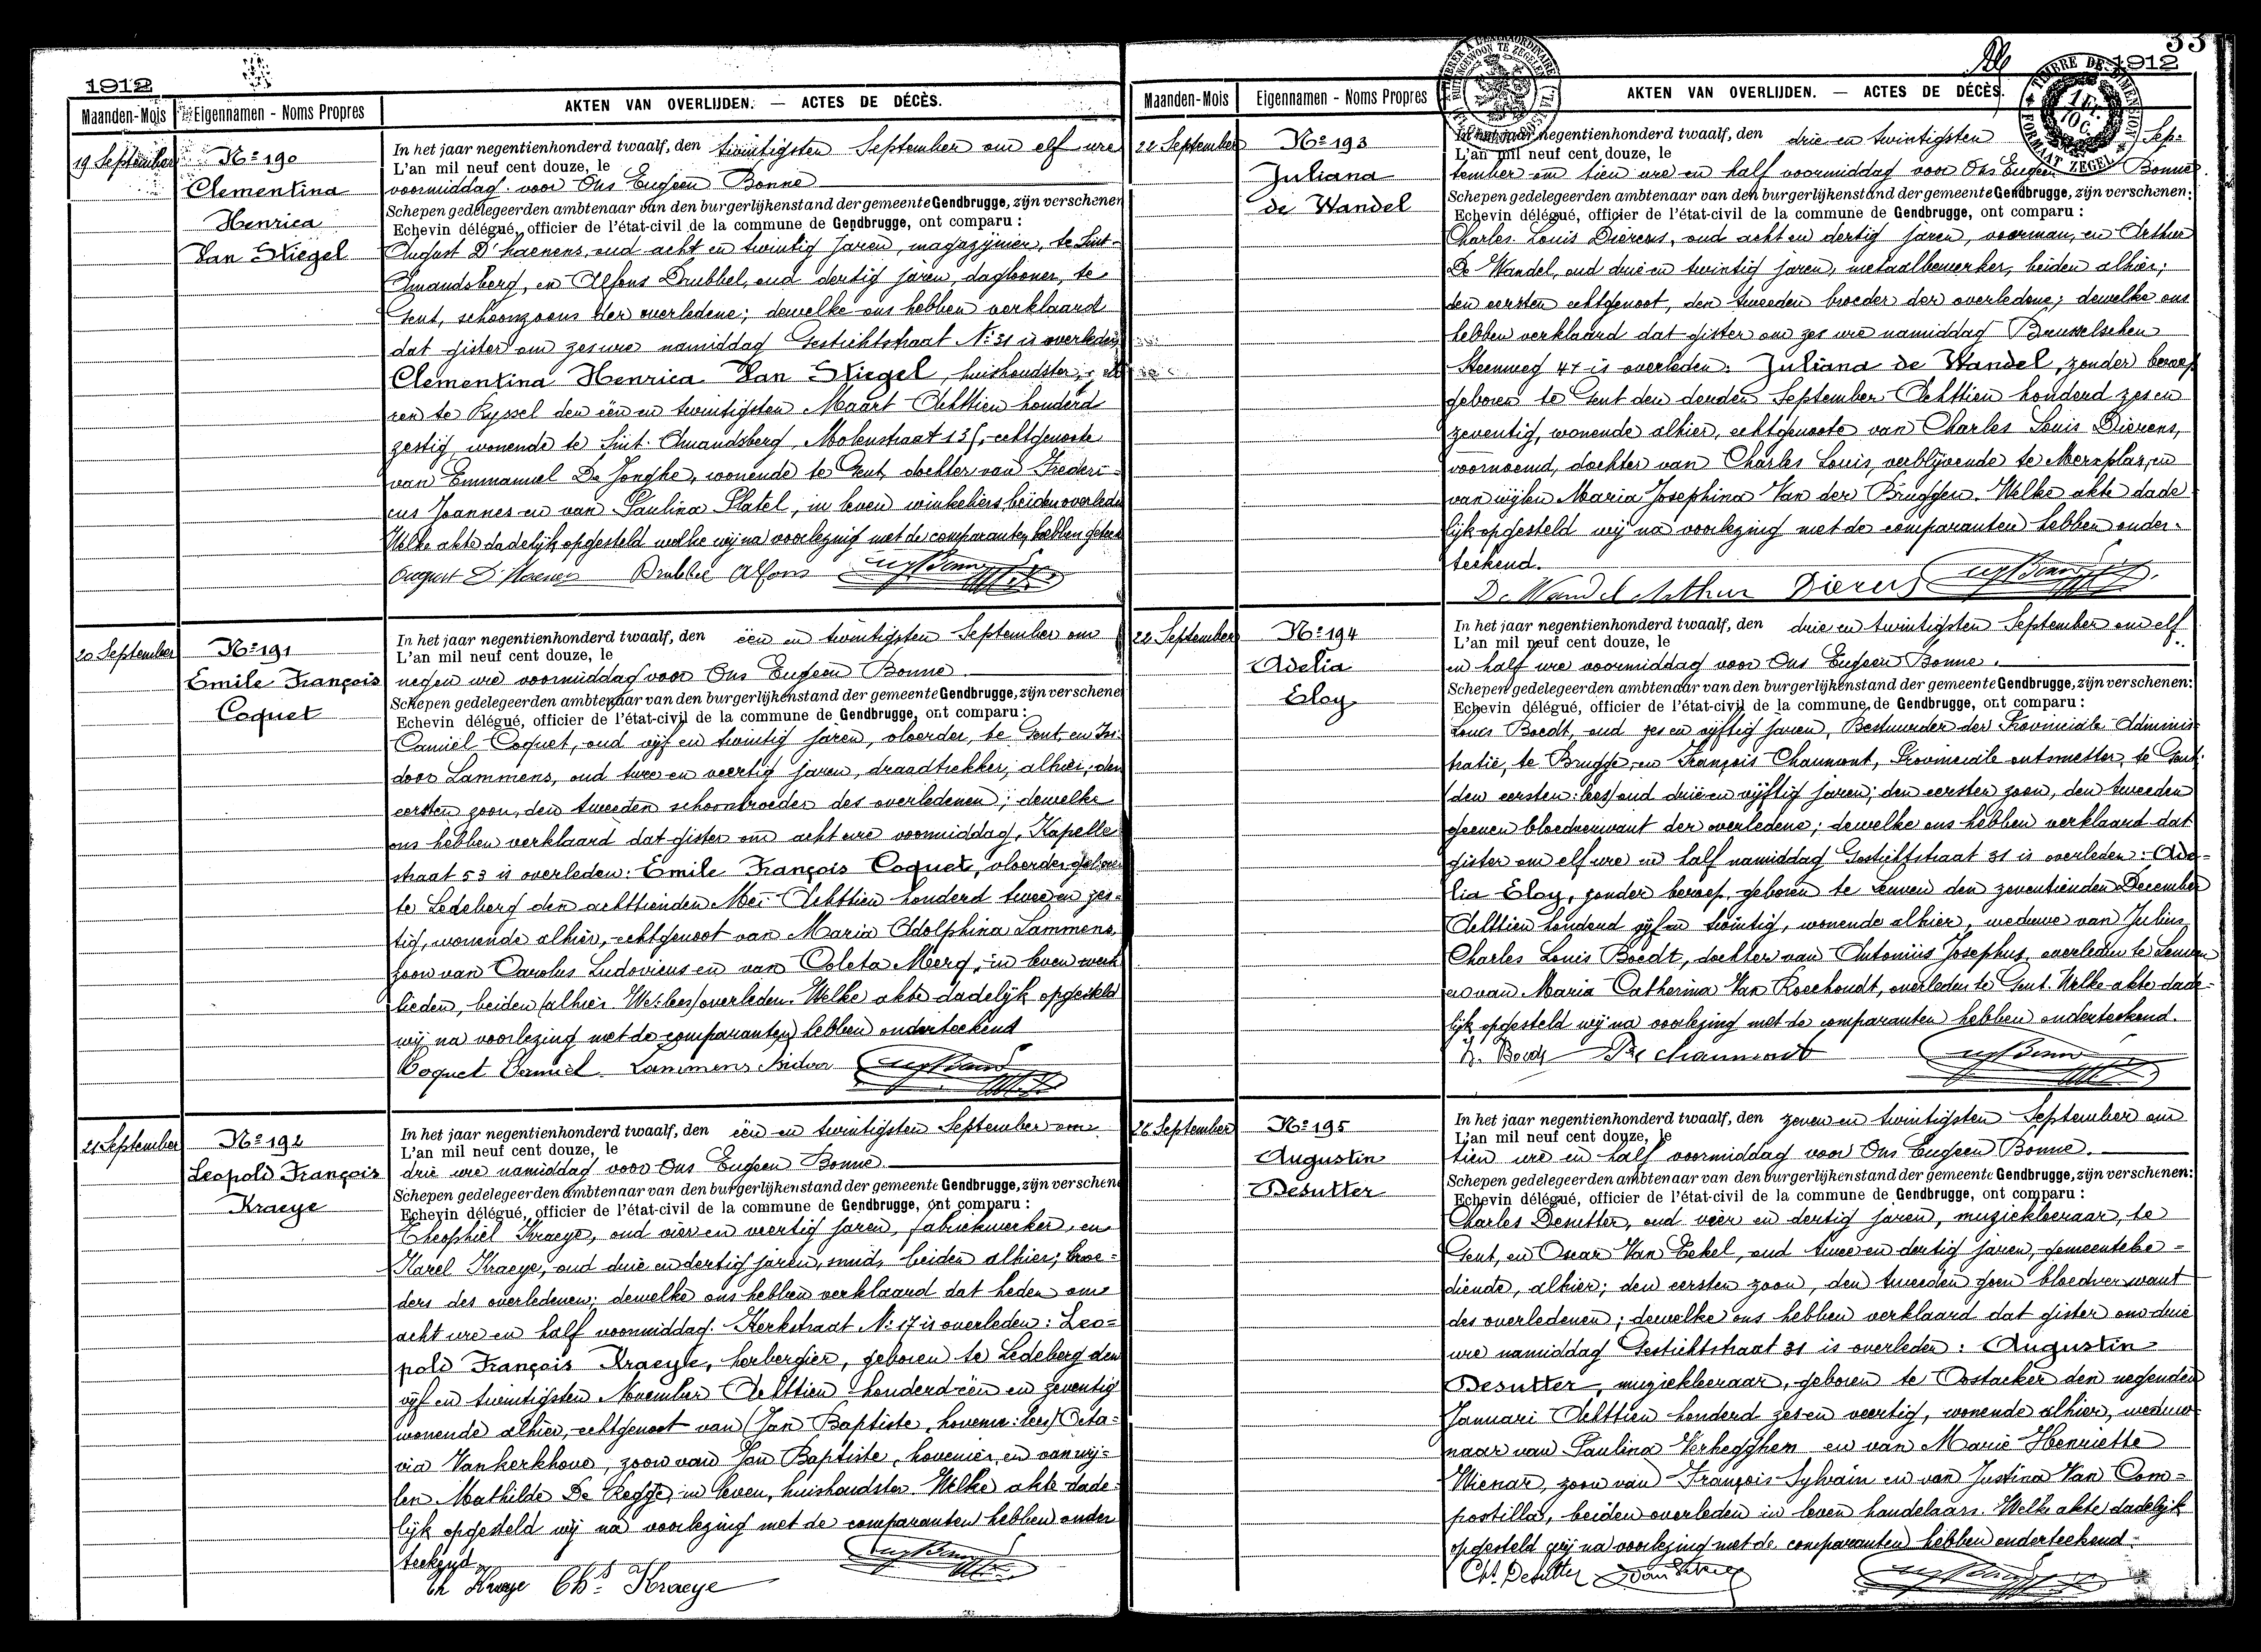 1912
Maanden-Mois Eigennamen - Noms Propres AKTEN VAN OVERLIJDEN. — ACTES DE DÉCÈS.
19 September
Nº 190
Clementina
Henrica
Van Stiegel
In het jaar negentienhonderd twaalf, den twintigsten September om elf ure
L'an mil neuf cent douze, le
voormiddag voor Ons Eugeen Bonne
Schepen gedelegeerden ambtenaar van den burgerlijkenstand der gemeente Gendbrugge, zijn verschenen
Echevin délégué, officier de l'état-civil de la commune de Gendbrugge, ont comparu :
August D'haenens, oud acht en twintig jaren, magazijnier, te Sint-
Amandsberg, en Alfons Drubbel, oud dertig jaren, daglooner, te
Gent, schoonzoons der overledene; dewelke ons hebben verklaard
dat gister om zes ure namiddag Gestichtstraat Nº 31 is overleden
Clementina Henrica Van Stiegel, huishoudster,
ren te Ryssel den één en twintigsten Maart Achttien honderd
zestig, wonende te Sint-Amandsberg, Molenstraat 135, echtgenoote
van Emmanuel De Jonghe, wonende te Gent, dochter van Frederi-
cus Joannes en van Paulina Platel, in leven winkeliers, beiden overleden
Welke akte dadelijk opgesteld welke wij na voorlezing met de comparanten hebben geteek
August D'Haenens Drubbel Alfons
20 September
Nº 191
Emile François
Coquet
In het jaar negentienhonderd twaalf, den één en twintigsten September om
L'an mil neuf cent douze, le
negen ure voormiddag voor Ons Eugeen Bonne
Schepen gedelegeerden ambtenaar van den burgerlijkenstand der gemeente Gendbrugge, zijn verschenen
Echevin délégué, officier de l'état-civil de la commune de Gendbrugge, ont comparu :
Camiel Coquet, oud vijf en twintig jaren, vloerder, te Gent, en Isi-
door Lammens, oud twee en veertig jaren, draadtrekker, alhier, den
eersten zoon, den tweeden schoonbroeder des overledenen; dewelke
ons hebben verklaard dat gister om acht ure voormiddag, Kapelle
straat 53 is overleden: Emile François Coquet, vloerder, geboren
te Ledeberg den achttienden Mei Achttien honderd twee en zes-
tig, wonende alhier, echtgenoot van Maria Adolphina Lammens,
zoon van Carolus Ludovicus en van Coleta Meerg, in leven werk
lieden, beiden (alhier We: lees) overleden. Welke akte dadelijk opgesteld
wij na voorlezing met de comparanten hebben onderteekend
Coquet Camiel Lammens Isidoor
21 September
Nº 192
Leopold François
Kraeye
In het jaar negentienhonderd twaalf, den één en twintigsten September om
L'an mil neuf cent douze, le
drie ure namiddag voor Ons Eugeen Bonne
Schepen gedelegeerden ambtenaar van den burgerlijkenstand der gemeente Gendbrugge, zijn verschenen
Echevin délégué, officier de l'état-civil de la commune de Gendbrugge, ont comparu :
Theophiel Kraeye, oud vier en veertig jaren, fabriekwerker, en
Karel Kraeye, oud drie en dertig jaren, smid, beiden alhier; broe-
ders des overledenen; dewelke ons hebben verklaard dat heden om
acht ure en half voormiddag Kerkstraat Nº 17 is overleden: Leo-
pold François Kraeye, herbergier, geboren te Ledeberg den
vijf en twintigsten November Achttien honderd één en zeventig
wonende alhier, echtgenoot van (Jan Baptiste, hovenier: lees) Octa-
via Vankerkhove, zoon van Jan Baptiste, hovenier, en van wij-
len Mathilde De Regge, in leven, huishoudster. Welke akte dade-
lijk opgesteld wij na voorlezing met de comparanten hebben onder
teekend
Th Kraeye Chs Kraeye
33
1912
Maanden-Mois Eigennamen - Noms Propres AKTEN VAN OVERLIJDEN. — ACTES DE DÉCÈS.
22 September
Nº 193
Juliana
de Wandel
In het jaar negentienhonderd twaalf, den drie en twintigsten Sep-
L'an mil neuf cent douze, le
tember om tien ure en half voormiddag voor Ons Eugeen Bonne
Schepen gedelegeerden ambtenaar van den burgerlijkenstand der gemeente Gendbrugge, zijn verschenen:
Echevin délégué, officier de l'état-civil de la commune de Gendbrugge, ont comparu :
Charles Louis Dierens, oud acht en dertig jaren, voerman, en Arthur
De Wandel, oud drie en twintig jaren, metaalbewerker, beiden alhier;
den eersten echtgenoot, den tweeden broeder der overledene; dewelke ons
hebben verklaard dat gister om zes ure namiddag Brusselschen
Steenweg 47 is overleden: Juliana de Wandel, zonder beroep
geboren te Gent den derden September Achttien honderd zes en
zeventig, wonende alhier, echtgenoote van Charles Louis Dierens,
voornoemd, dochter van Charles Louis, verblijvende te Merxplas, en
van wijlen Maria Josephina Van der Bruggen. Welke akte dade
lijk opgesteld wij na voorlezing met de comparanten hebben onder-
teekend.
De Wandel Arthur Dierens
22 September
Nº 194
Adelia
Eloy
In het jaar negentienhonderd twaalf, den drie en twintigsten September om elf
L'an mil neuf cent douze, le
en half ure voormiddag voor Ons Eugeen Bonne.
Schepen gedelegeerden ambtenaar van den burgerlijkenstand der gemeente Gendbrugge, zijn verschenen:
Echevin délégué, officier de l'état-civil de la commune de Gendbrugge, ont comparu :
Louis Boedt, oud zes en vijftig jaren, Bestuurder der Provinciale Adminis-
tratie, te Brugge, en François Chaumont, Provinciale ontsmetter, te Gent
(den eersten: lees) oud drie en vijftig jaren; den eersten zoon, den tweeden
geenen bloedverwant der overledene; dewelke ons hebben verklaard dat
gister om elf ure en half namiddag Gestichtstraat 31 is overleden: Ade-
lia Eloy, zonder beroep, geboren te Leuven den zeventienden December
Achttien honderd vijf en twintig, wonende alhier, weduwe van Julius
Charles Louis Boedt, dochter van Antonius Josephus, overleden te Leuven
en van Maria Catherina Van Roechoudt, overleden te Gent. Welke akte dade-
lijk opgesteld wij na voorlezing met de comparanten hebben onderteekend.
L. Boedt Chaumont
26 September
Nº 195
Augustin
Desutter
In het jaar negentienhonderd twaalf, den zeven en twintigsten September om
L'an mil neuf cent douze, le
tien ure en half voormiddag voor Ons Eugeen Bonne.
Schepen gedelegeerden ambtenaar van den burgerlijkenstand der gemeente Gendbrugge, zijn verschenen:
Echevin délégué, officier de l'état-civil de la commune de Gendbrugge, ont comparu :
Charles Desutter, oud vier en dertig jaren, muziekleeraar, te
Gent, en Oscar Van Eekel, oud twee en dertig jaren, gemeentebe-
diende, alhier; den eersten zoon, den tweeden geen bloedverwant
des overledenen; dewelke ons hebben verklaard dat gister om drie
ure namiddag Gestichtstraat 31 is overleden: Augustin
Desutter, muziekleeraar, geboren te Oostacker den negenden
Januari Achttien honderd zes en veertig, wonende alhier, weduw-
naar van Paulina Verhegghen en van Marie Henriette
Wienar, zoon van François Sylvain en van Justina Van Com-
postilla, beiden overleden in leven handelaars. Welke akte dadelijk
opgesteld wij na voorlezing met de comparanten hebben onderteekend
Chs Desutter